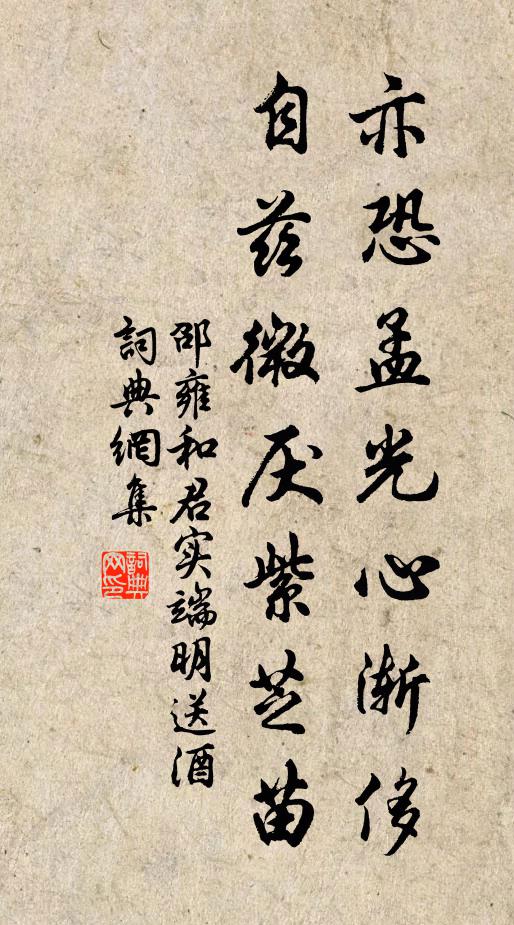 亦恐孟光心渐侈
自茲微厌紫芝苗
邵雍和君实端明送酒
詞典網集
詞典網印